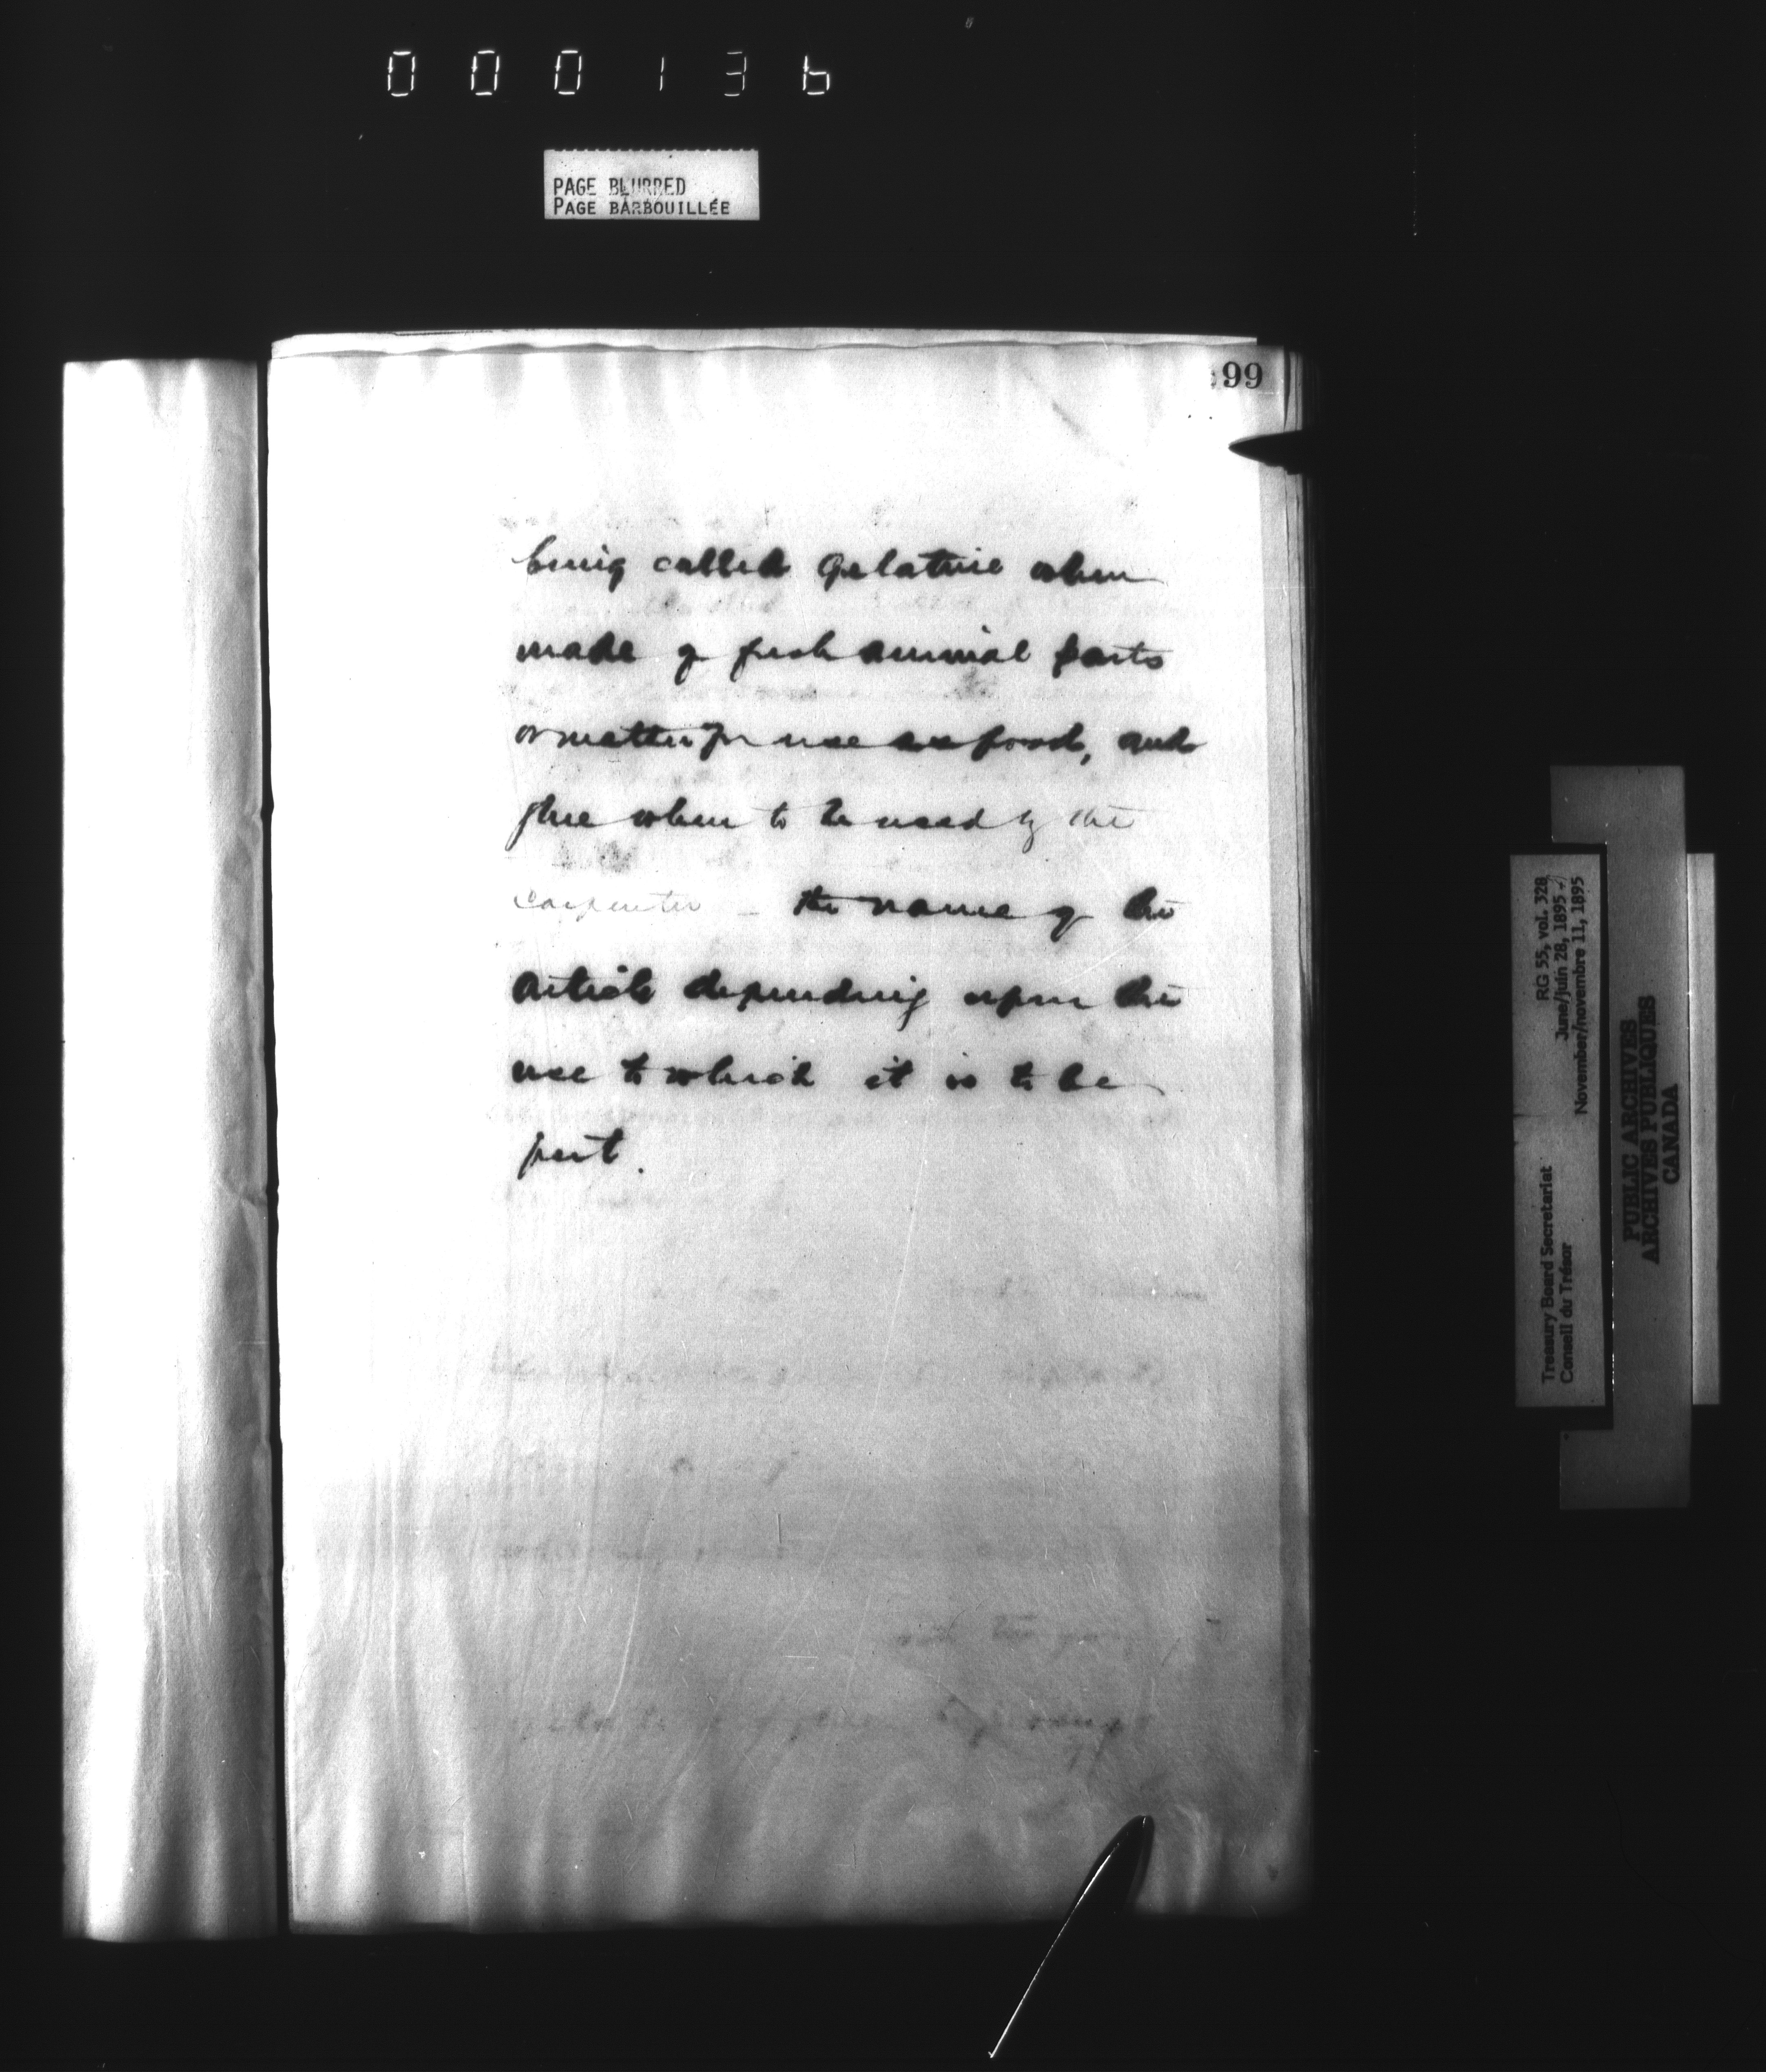 000136
PAGE BLURRED
PAGE BARBOUILLÉE
99
being called Gelatine when
made of fresh animal parts
or matter for use as food, and
glue when to be used by the
carpenter — the name of the
article depending upon the
use to which it is to be
put.
RG 55, vol. 328
June/juin 28, 1895 -
November/novembre 11, 1895
Treasury Board Secretariat
Conseil du Trésor
PUBLIC ARCHIVES
ARCHIVES PUBLIQUES
CANADA